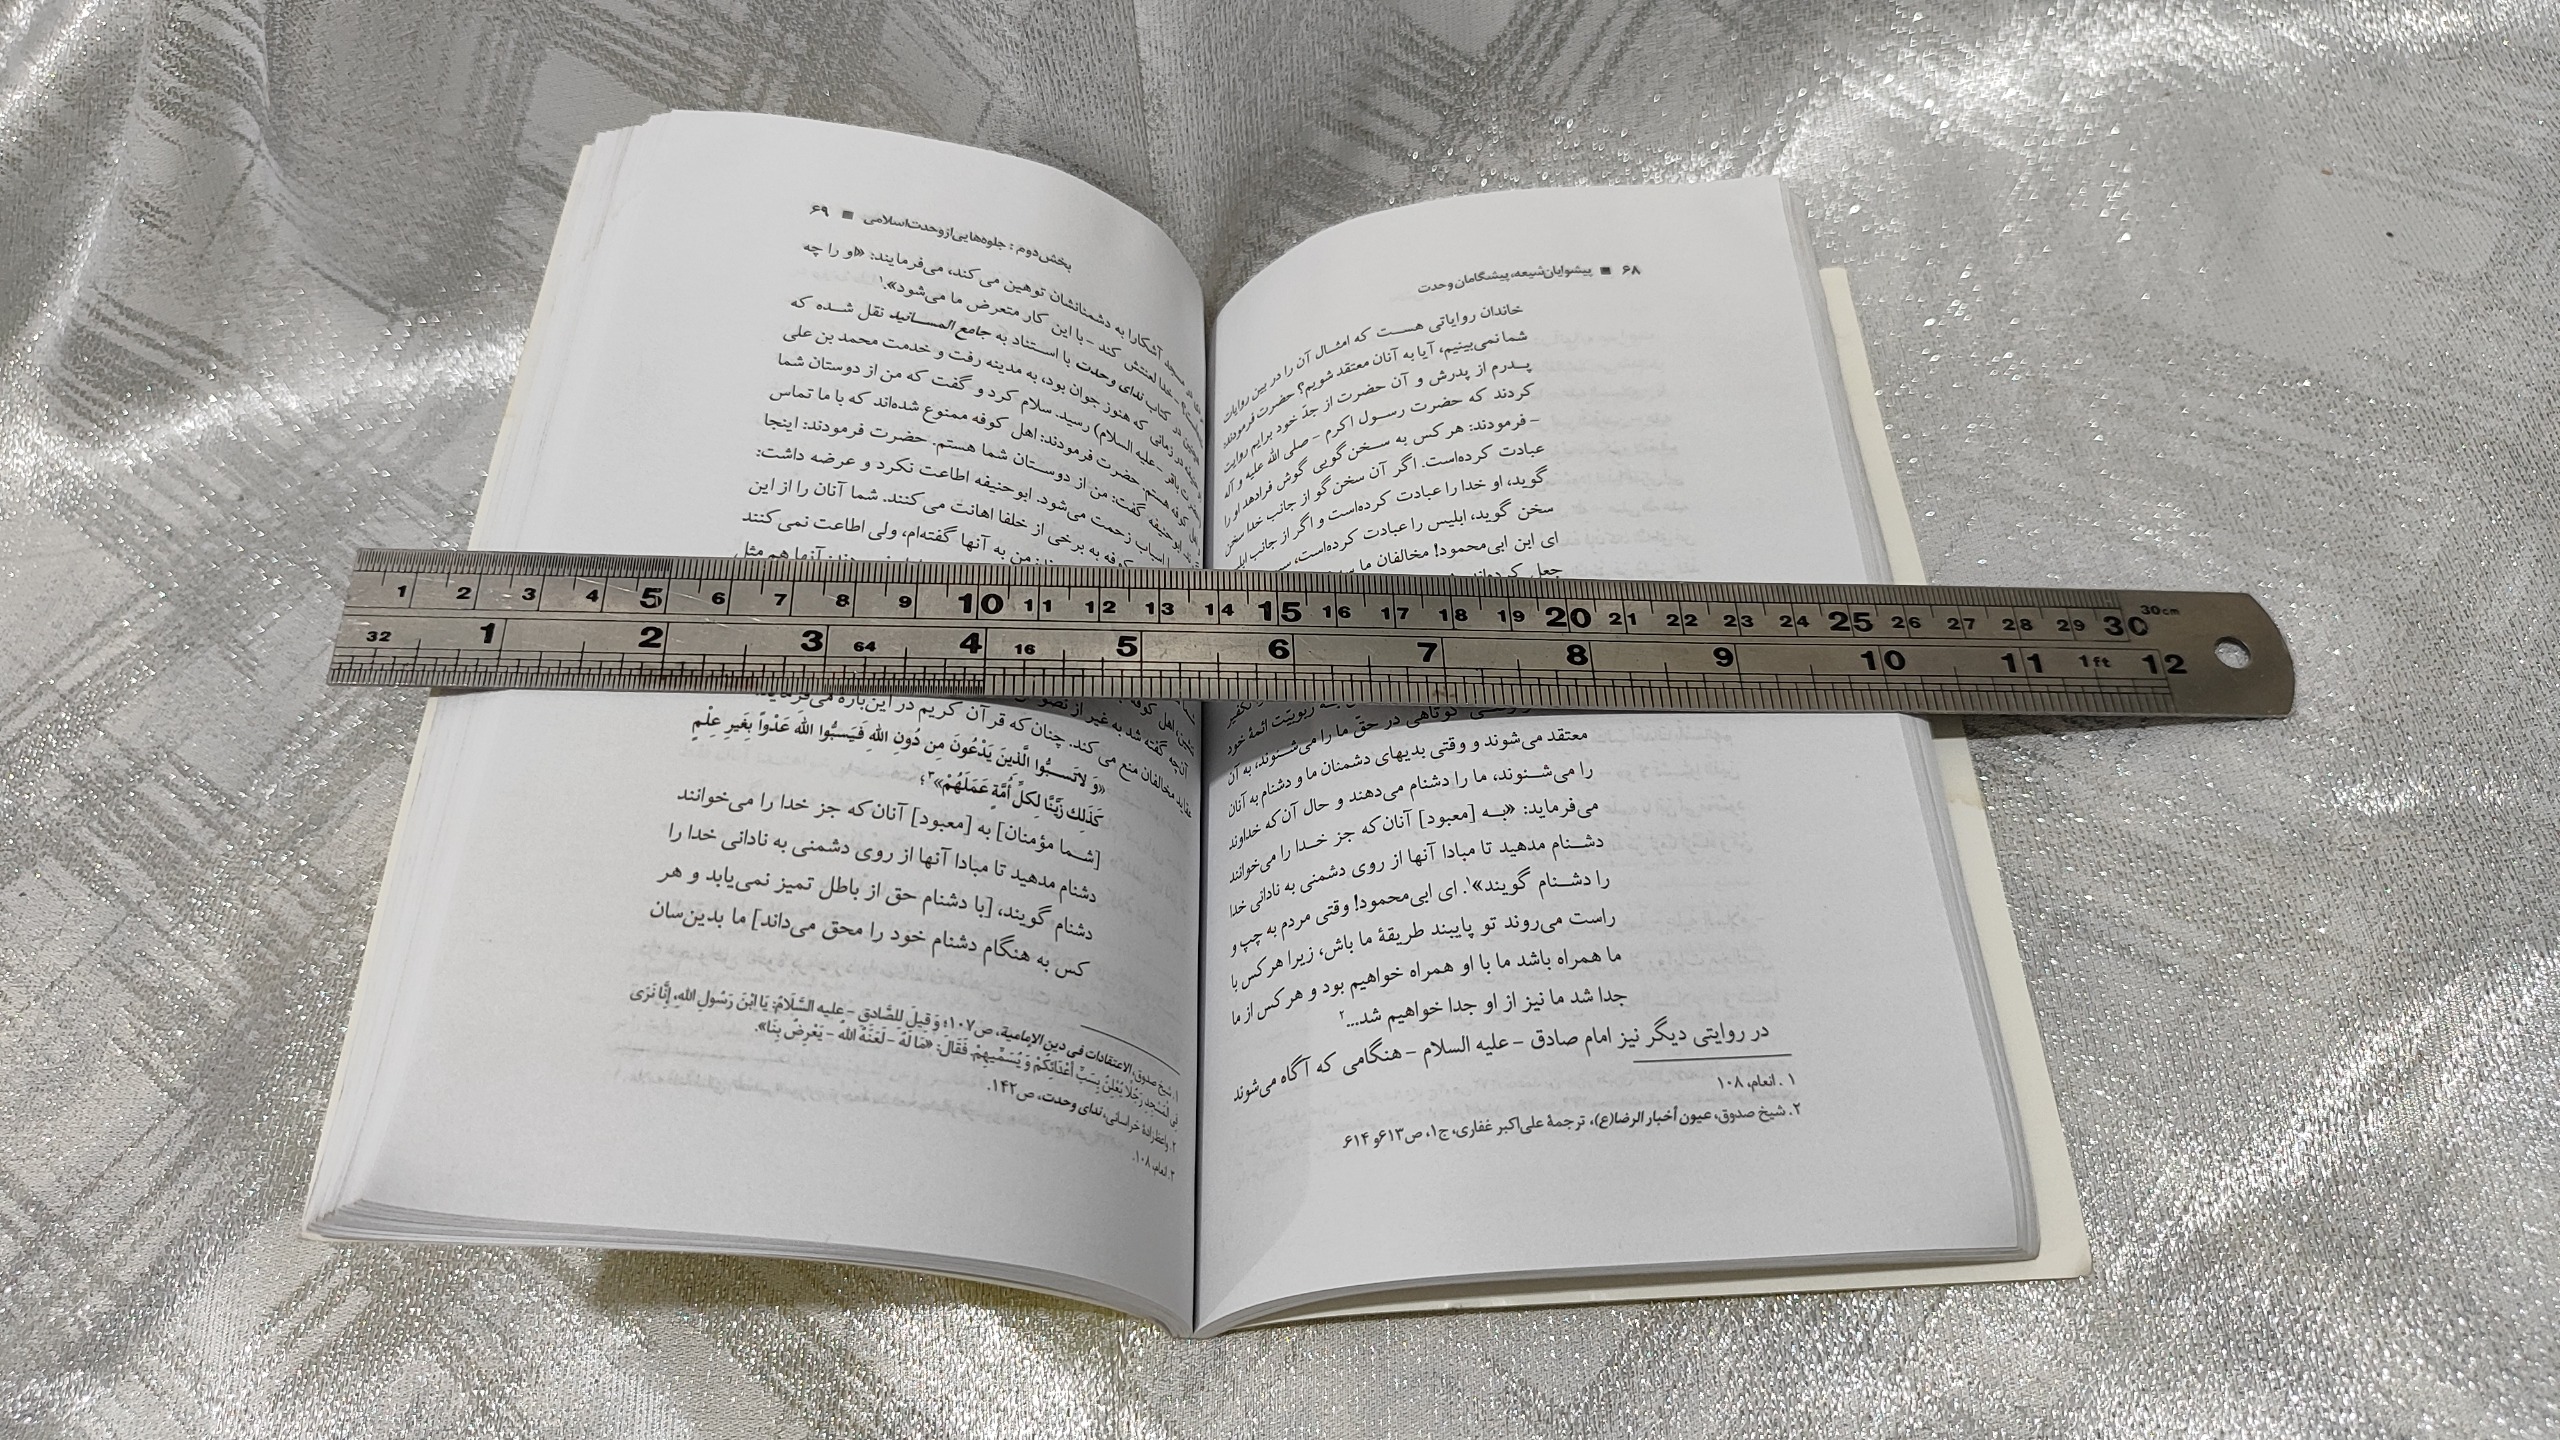 ۶۸ ■ پیشوایان شیعه، پیشگامان وحدت
خاندان روایاتی هست که امثال آن را در بین روایات
شما نمی‌بینیم، آیا به آنان معتقد شویم؟ حضرت فرمودند:
پدرم از پدرش و آن حضرت از جدّ خود برایم روایت
کردند که حضرت رسول اکرم - صلی الله علیه و آله
- فرمودند: هر کس به سخن‌گویی گوش فرادهد او را
عبادت کرده‌است. اگر آن سخن‌گو از جانب خدا سخن
گوید، او خدا را عبادت کرده‌است و اگر از جانب
سخن گوید، ابلیس را عبادت کرده‌است،
ای ابن ابی‌محمود! مخالفان ما
جعل کرده‌اند
کوتاهی در حق ما را می‌شنوند، به آن
معتقد می‌شوند و وقتی بدیهای دشمنان ما و دشنام به آنان
را می‌شنوند، ما را دشنام می‌دهند و حال آن‌که خداوند
می‌فرماید: «به [معبود] آنان که جز خدا را می‌خوانند
دشنام مدهید تا مبادا آنها از روی دشمنی به نادانی خدا
را دشنام گویند»۱. ای ابی‌محمود! وقتی مردم به چپ و
راست می‌روند تو پایبند طریقهٔ ما باش، زیرا هر کس با
ما همراه باشد ما با او همراه خواهیم بود و هر کس از ما
جدا شد ما نیز از او جدا خواهیم شد...۲
در روایتی دیگر نیز امام صادق - علیه السلام - هنگامی که آگاه می‌شوند
۱. انعام، ۱۰۸
۲. شیخ صدوق، عیون أخبار الرضا(ع)، ترجمهٔ علی‌اکبر غفاری، ج۱، ص۶۱۳ و ۶۱۴
بخش دوم: جلوه‌هایی از وحدت اسلامی ■ ۶۹
مسجد آشکارا به دشمنانشان توهین می‌کند، می‌فرمایند: «او را چه
خدا لعنتش کند - با این کار متعرض ما می‌شود».۱
در کتاب ندای وحدت با استناد به جامع المسانید نقل شده که
در زمانی که هنوز جوان بود، به مدینه رفت و خدمت محمد بن علی
باقر - علیه السلام) رسید. سلام کرد و گفت که من از دوستان شما
هستم. حضرت فرمودند: اهل کوفه ممنوع شده‌اند که با ما تماس
ابوحنیفه گفت: من از دوستان شما هستم. حضرت فرمودند: اینجا
اسباب زحمت می‌شود. ابوحنیفه اطاعت نکرد و عرضه داشت:
کوفه به برخی از خلفا اهانت می‌کنند. شما آنان را از این
من به آنها گفته‌ام، ولی اطاعت نمی‌کنند
آنها هم مثل
اهل کوفه
آن‌چه گفته شد به غیر از نصوص
عقاید مخالفان منع می‌کند. چنان‌که قرآن کریم در این‌باره می‌فرماید:
«وَ لاتَسبُّوا الَّذینَ یَدْعُونَ مِن دُونِ اللهِ فَیَسبُّوا الله عَدْواً بِغَیر عِلْمٍ
کَذَلِك زَیَّنَّا لِکلِّ أُمَّةٍ عَمَلَهُمْ»۳؛
[شما مؤمنان] به [معبود] آنان که جز خدا را می‌خوانند
دشنام مدهید تا مبادا آنها از روی دشمنی به نادانی خدا را
دشنام گویند، [با دشنام حق از باطل تمیز نمی‌یابد و هر
کس به هنگام دشنام خود را محق می‌داند] ما بدین‌سان
۱. شیخ صدوق، الاعتقادات فی دین الإمامیة، ص۱۰۷؛ وَ قِیلَ لِلصَّادِقِ - علیه السَّلَامُ: یَا ابْنَ رَسُولِ اللهِ، إِنَّا نَرَی
فِی الْمَسْجِدِ رَجُلًا یُعْلِنُ بِسَبِّ أَعْدَائِکُمْ وَ یُسَمِّیهِمْ. فَقَالَ: «مَا لَهُ - لَعَنَهُ اللهُ - یَعْرِضُ بِنَا».
۲. واعظ‌زادهٔ خراسانی، ندای وحدت، ص۱۴۲.
۳. انعام، ۱۰۸.
1 2 3 4 5 6 7 8 9 10 11 12 13 14 15 16 17 18 19 20 21 22 23 24 25 26 27 28 29 30 30cm
32 1 2 3 64 4 16 5 6 7 8 9 10 11 1ft 12